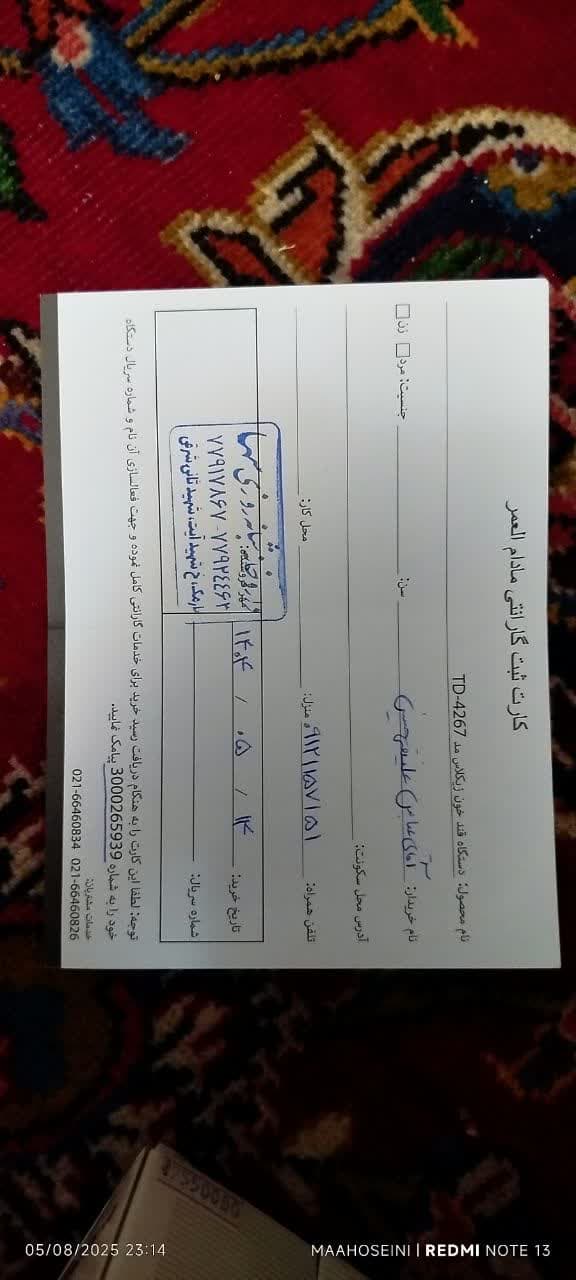 کارت ثبت گارانتی مادام العمر
نام محصول: دستگاه قند خون زیکلاس مد TD-4267
نام خریدار: آقای عباس سن: جنسیت: مرد □ زن □
آدرس محل سکونت:
تلفن همراه: ۰۹۱۲۱۱۵۷۱۵۱ منزل: محل کار:
تاریخ خرید: ۱۴ / ۰۵ / ۱۴۰۴ مهر فروشنده:
شبانه روزی
۷۷۹۱۷۸۶۷-۷۷۹۲۴۴۶۲
نارمک، خ شهید آیت، شهید ثانی شرقی
شماره سریال:
توجه: لطفا این کارت را به هنگام دریافت رسید خرید برای خدمات گارانتی کامل نموده و جهت فعالسازی آن نام و شماره سریال دستگاه
خود را به شماره 3000265939 پیامک نمایید.
خدمات مشتریان:
021-66460834 021-66460826
05/08/2025 23:14
MAAHOSEINI | REDMI NOTE 13